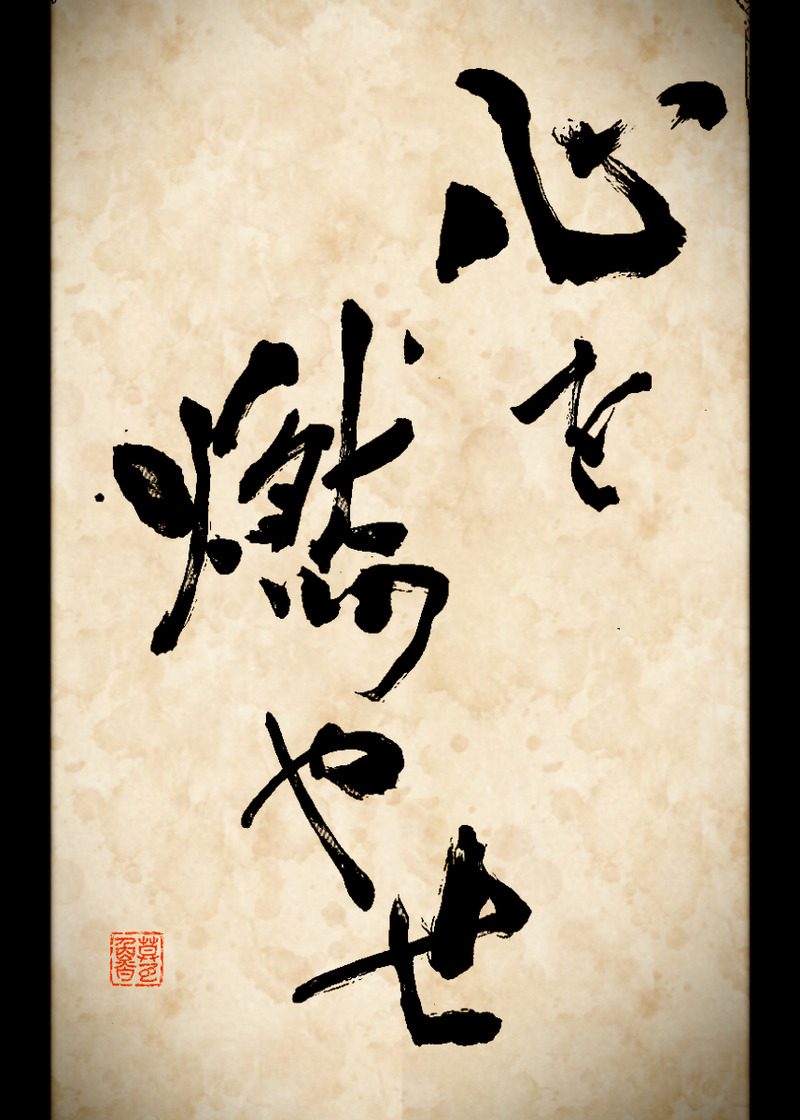 心を
燃やせ